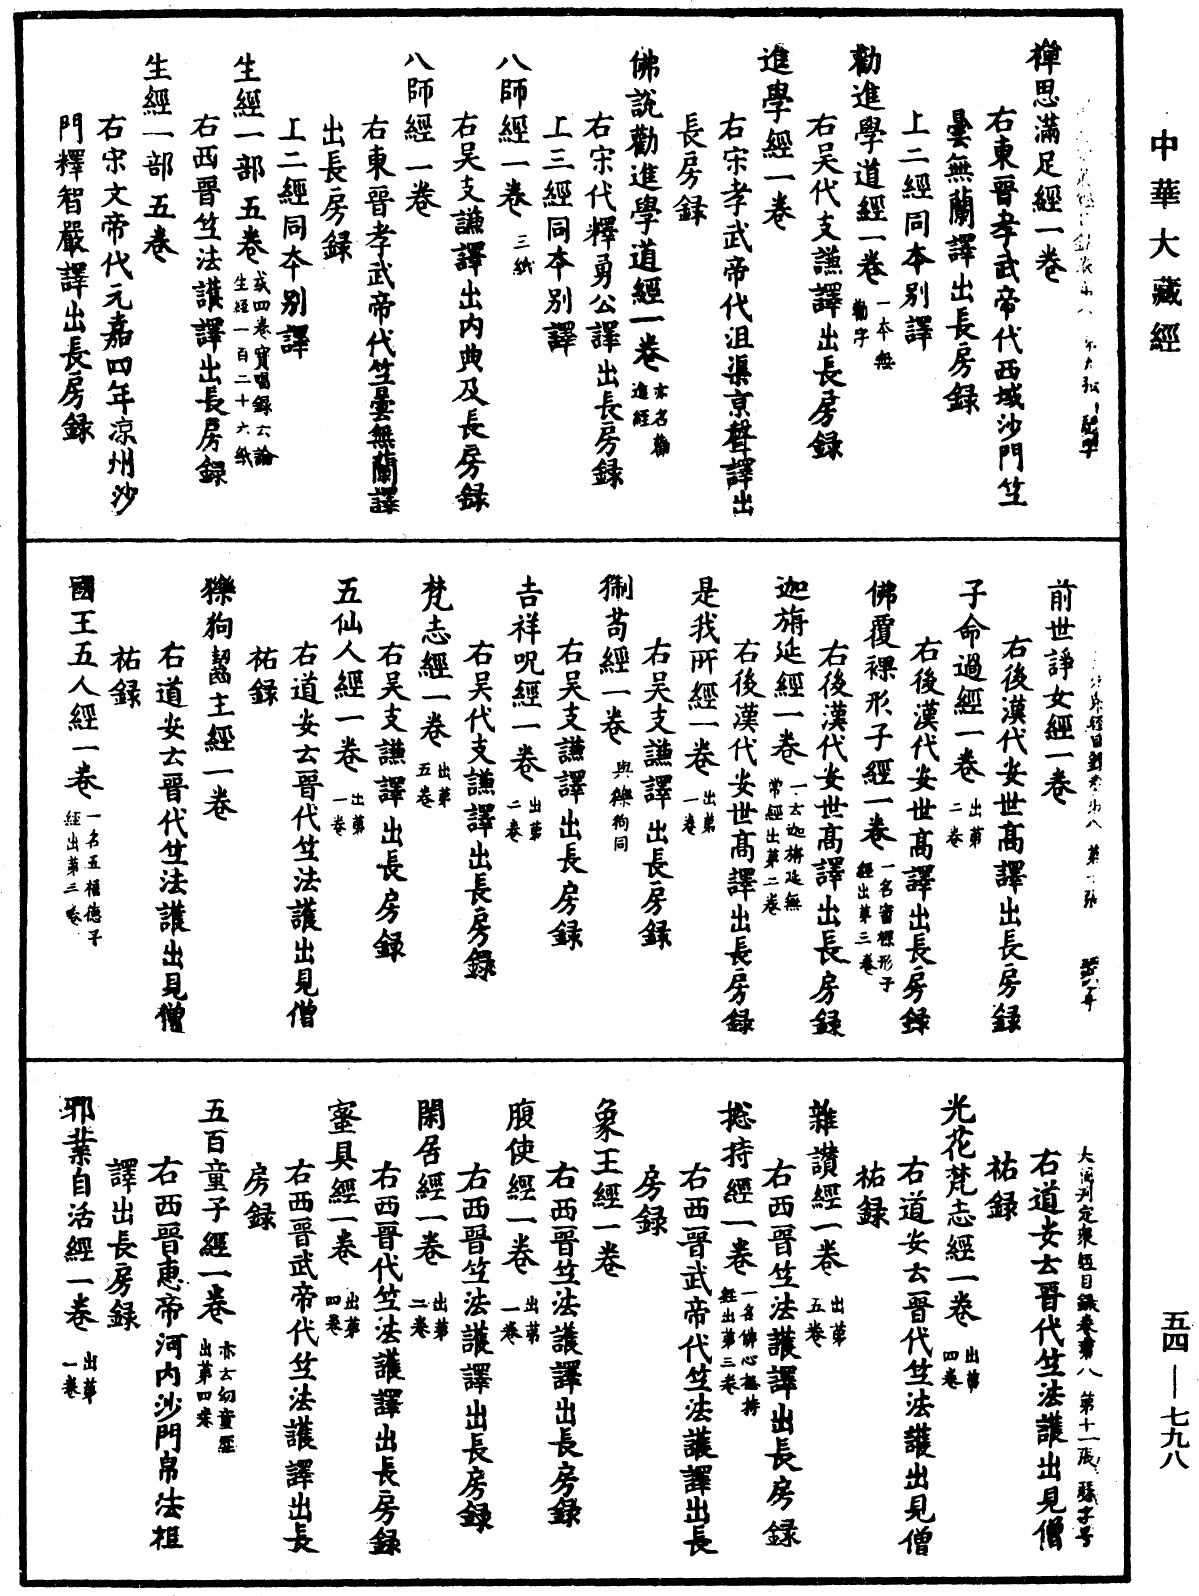 中華大藏經
禪思滿足經一卷
右東晉孝武帝代西域沙門竺
曇無蘭譯出長房録
上二經同本別譯
勸進學道經一卷 一本無勸字
右吴代支謙譯出長房録
進學經一卷
右宋孝武帝代沮渠京聲譯出
長房録
佛說勸進學道經一卷 亦名勸進經
右宋代釋勇公譯出長房録
上三經同本別譯
八師經一卷 三紙
右吴支謙譯出内典及長房録
八師經一卷
右東晉孝武帝代竺曇無蘭譯
出長房録
上二經同本別譯
生經一部五卷 或四卷寶唱録云論生經一百二十六紙
右西晉竺法護譯出長房録
生經一部五卷
右宋文帝代元嘉四年凉州沙
門釋智嚴譯出長房録
前世諍女經一卷
右後漢代安世高譯出長房録
子命過經一卷 出第二卷
右後漢代安世高譯出長房録
佛覆裸形子經一卷 一名蜜裸形子經出第三卷
右後漢代安世高譯出長房録
迦旃延經一卷 一云迦旃延無常經出第二卷
右後漢代安世高譯出長房録
是我所經一卷 出第一卷
右吴支謙譯出長房録
猘苟經一卷 與㺀狗同
右吴支謙譯出長房録
吉祥呪經一卷 出第二卷
右吴代支謙譯出長房録
梵志經一卷 出第五卷
右吴支謙譯出長房録
五仙人經一卷 出第一卷
右道安云晉代竺法護出見僧
祐録
㺀狗齧主經一卷
右道安云晉代竺法護出見僧
祐録
國王五人經一卷 一名五福德子經出第三卷
大周刊定衆經目録卷第八 第十一張
右道安云晉代竺法護出見僧
祐録
光花梵志經一卷 出第四卷
右道安云晉代竺法護出見僧
祐録
雜讚經一卷 出第五卷
右西晉竺法護譯出長房録
揔持經一卷 一名佛心揔持經出第三卷
右西晉武帝代竺法護譯出長
房録
象王經一卷
右西晉竺法護譯出長房録
腹使經一卷 出第一卷
右西晉竺法護譯出長房録
閑居經一卷 出第二卷
右西晉代竺法護譯出長房録
蜜具經一卷 出第四卷
右西晉武帝代竺法護譯出長
房録
五百童子經一卷 亦云幼童經出第四卷
右西晉惠帝河内沙門帛法祖
譯出長房録
邪業自活經一卷 出第一卷
五四—七九八